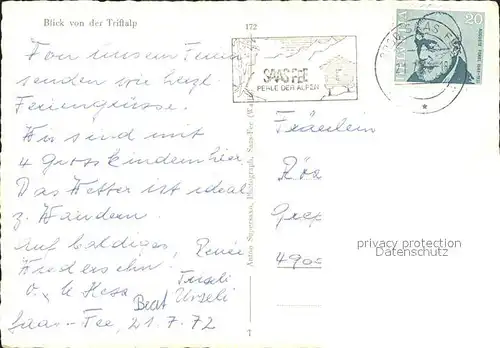 Blick von der Triftalp
172
Von unserm Ferien
senden wir herzl.
Feriengrüsse.
Wir sind mit
4 Grosskindern hier.
Das Wetter ist ideal
z. Wandern.
Auf baldiges, Renée
Wiedersehn.
Beat Urseli
Saas-Fee, 21.7.72
SAAS FEE
PERLE DER ALPEN
HELVETIA
20
Anton Supersaxo, Photograph, Saas-Fee
Fräulein
4900
privacy protection
Datenschutz